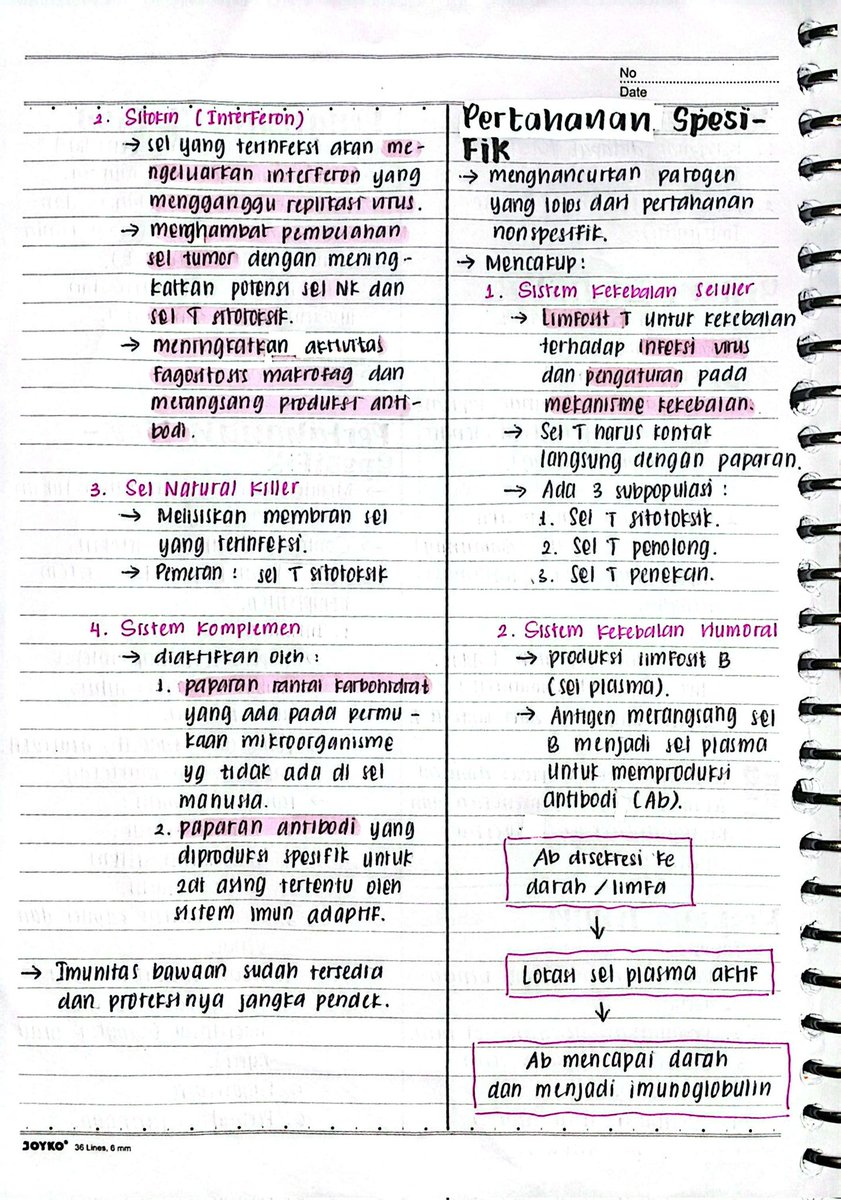 No
Date
2. Sitokin (Interferon)
→ sel yang terinfeksi akan me-
ngeluarkan interferon yang
mengganggu replikasi virus.
→ menghambat pembelahan
sel tumor dengan mening-
katkan potensi sel NK dan
sel T sitotoksik.
→ meningkatkan aktivitas
fagositosis makrofag dan
merangsang produksi anti-
bodi.
3. Sel Natural Killer
→ Melisiskan membran sel
yang terinfeksi.
→ Pemeran : sel T sitotoksik
4. Sistem Komplemen
→ diaktifkan oleh :
1. paparan rantai karbohidrat
yang ada pada permu-
kaan mikroorganisme
yg tidak ada di sel
manusia.
2. paparan antibodi yang
diproduksi spesifik untuk
zat asing tertentu oleh
sistem imun adaptif.
→ Imunitas bawaan sudah tersedia
dan proteksinya jangka pendek.
Pertahanan Spesi-
fik
→ menghancurkan patogen
yang lolos dari pertahanan
nonspesifik.
→ Mencakup :
1. Sistem Kekebalan Seluler
→ Limfosit T untuk kekebalan
terhadap infeksi virus
dan pengaturan pada
mekanisme kekebalan.
→ Sel T harus kontak
langsung dengan paparan.
→ Ada 3 subpopulasi :
1. Sel T sitotoksik.
2. Sel T penolong.
3. Sel T penekan.
2. Sistem Kekebalan Humoral
→ produksi limfosit B
(sel plasma).
→ Antigen merangsang sel
B menjadi sel plasma
untuk memproduksi
antibodi (Ab).
Ab disekresi ke
darah / limfa
↓
Lokasi sel plasma aktif
↓
Ab mencapai darah
dan menjadi imunoglobulin
JOYKO® 36 Lines, 6 mm